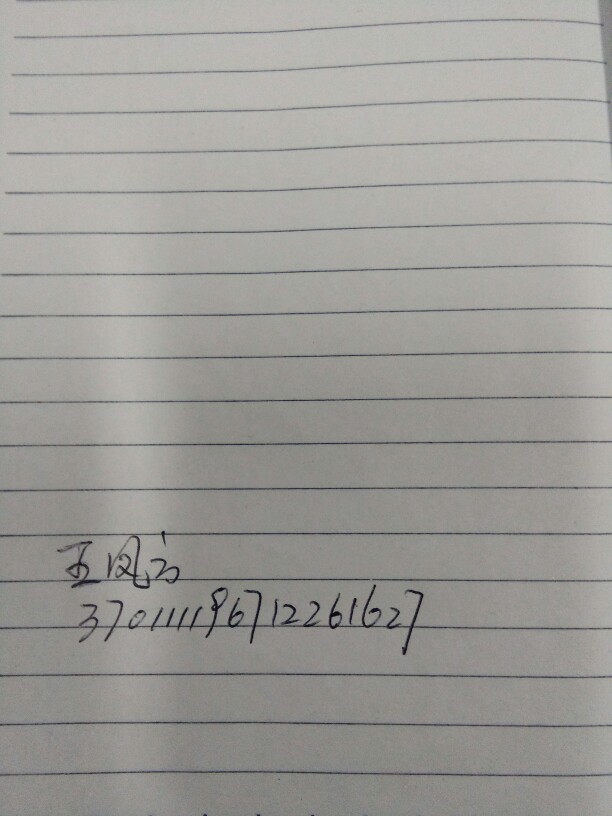 王凤云
370111196712261627